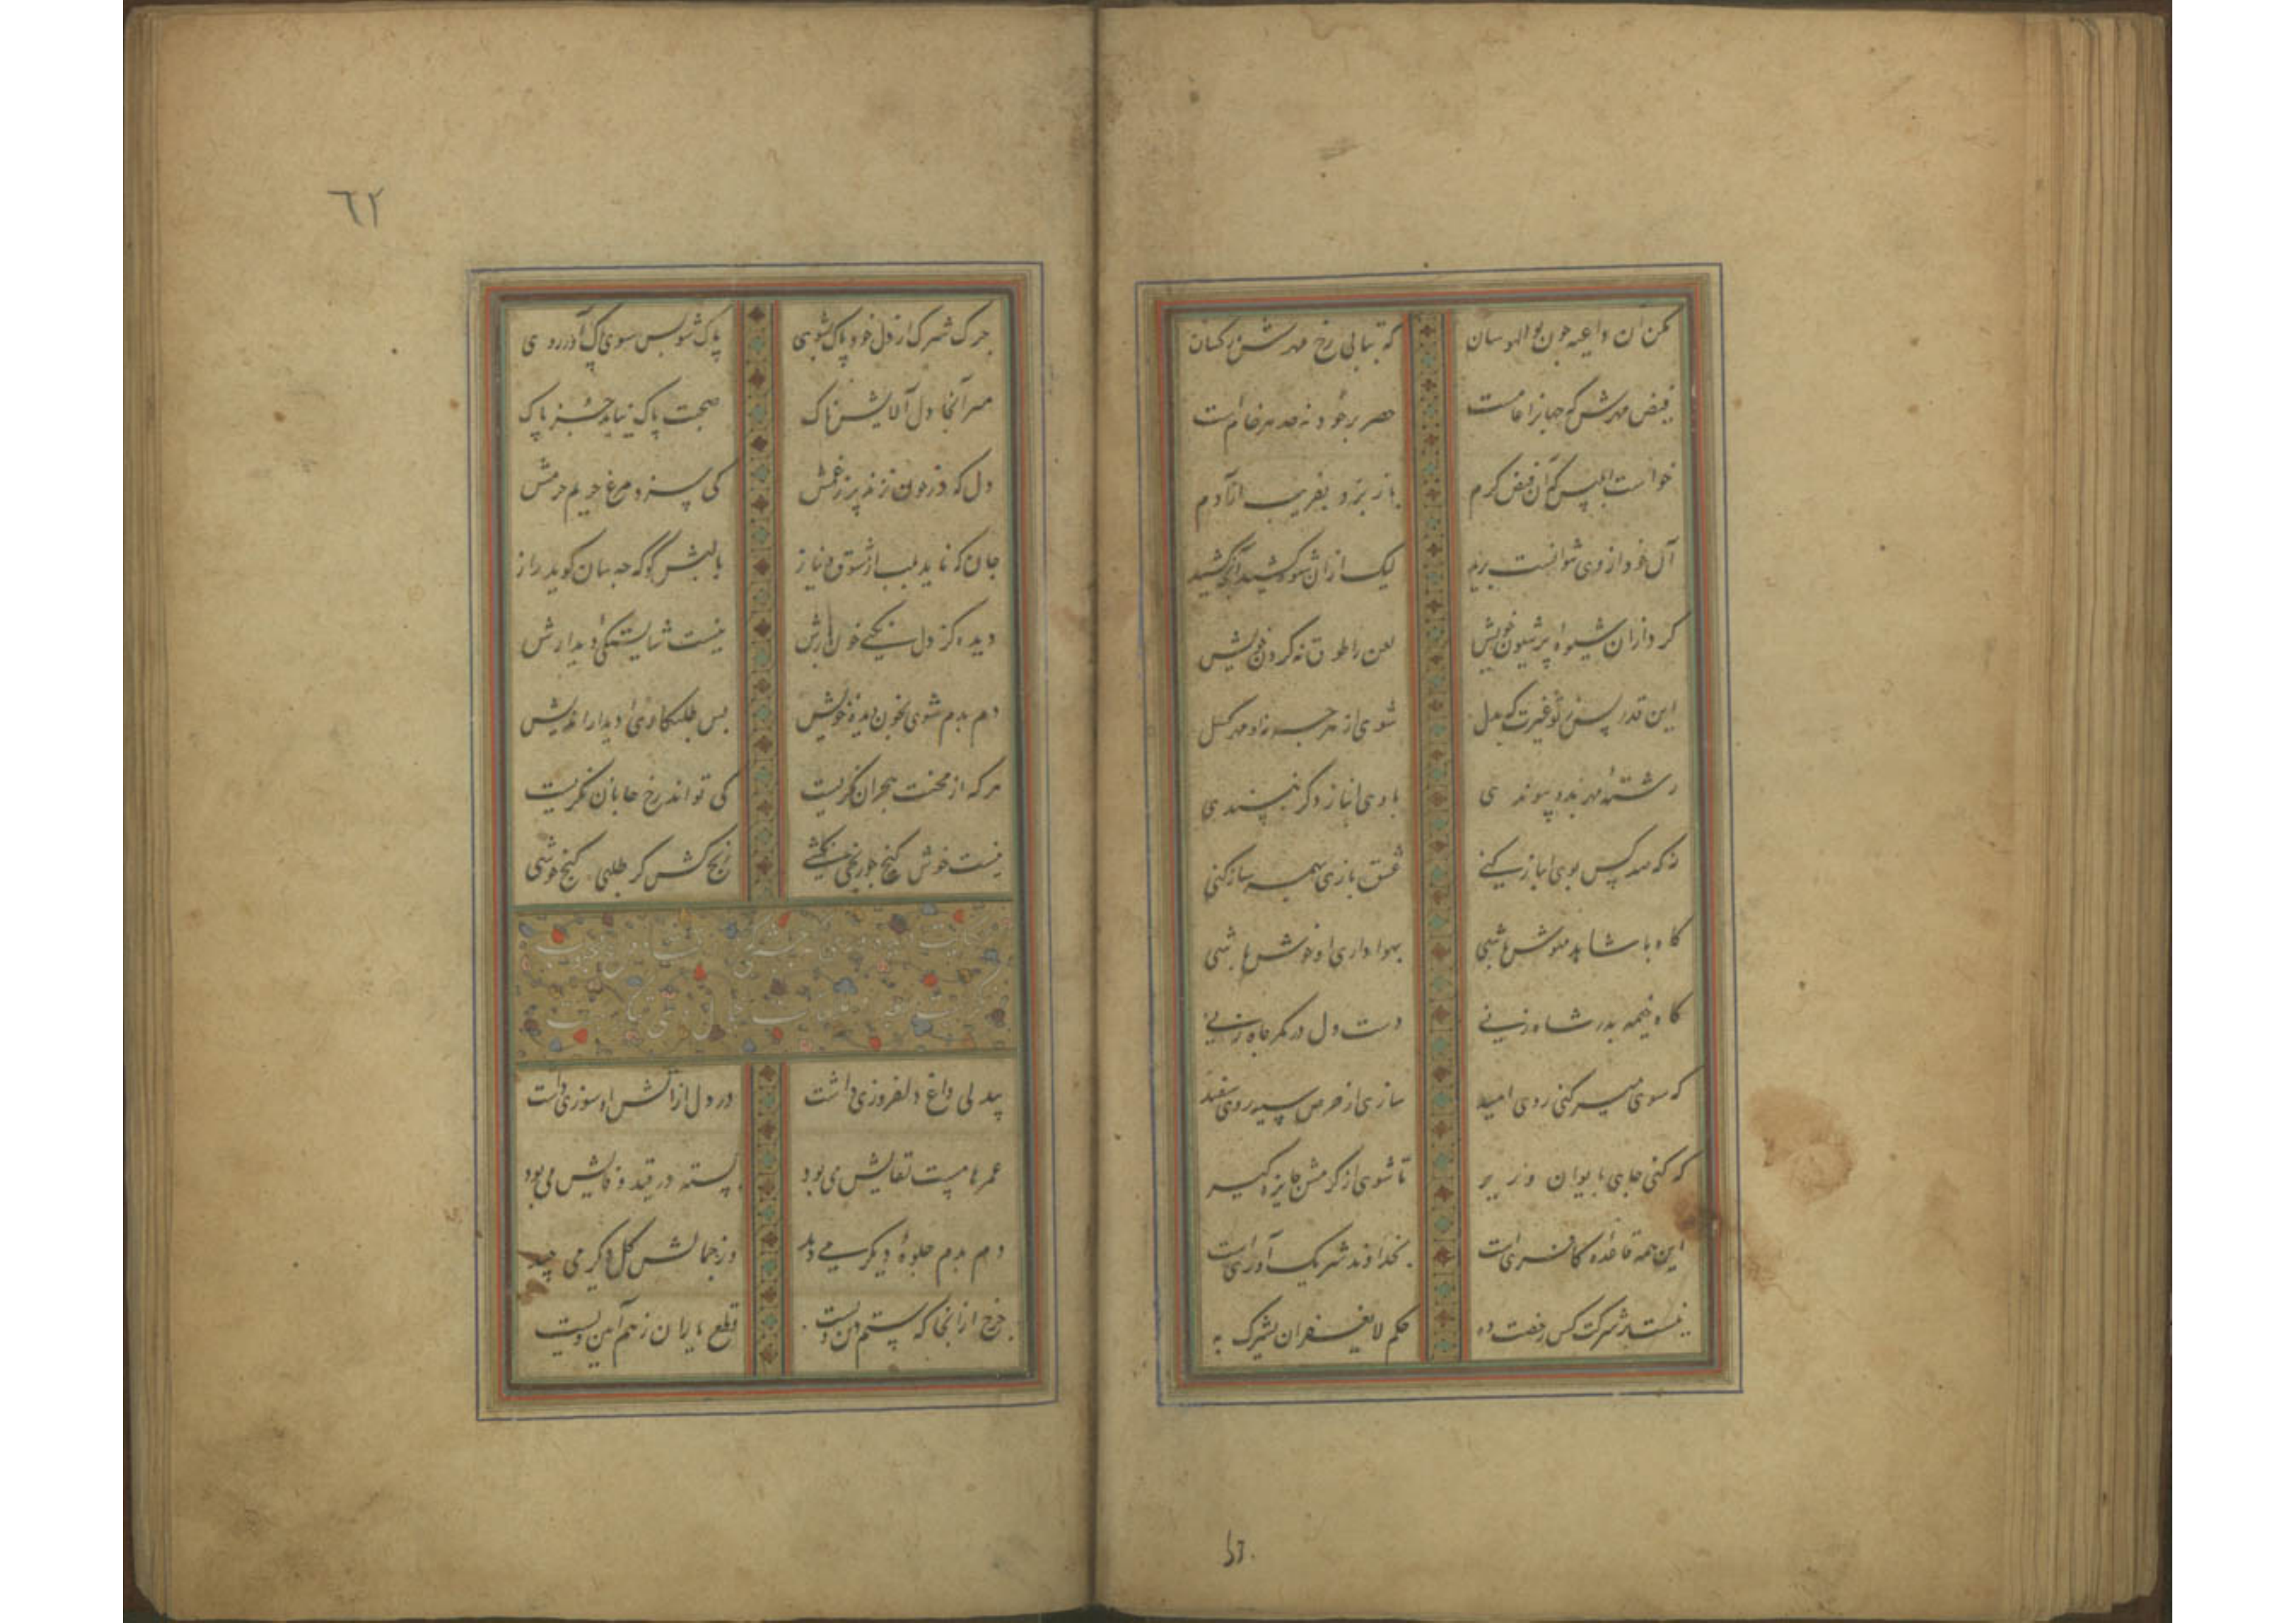 مکن آن داعیه چون بوالهوسان که بتابی رخ مهرش ز کسان
فیض مهرش که جهانرا عامست حصر بر خود نه حد هر خامست
خواست ابلیس که آن فیض کرم باز برد بفریب از آدم
آن خود از وی نتوانست برید لیک از آن شیوه کشید آنچه کشید
کرد از آن شیوه پر شیون خویش لعن را طوق نه گردن خویش
این قدر بس ز تو غیرت که بدل شوی از هر چه نه زو مهر گسل
رشته مهر بدو پیوندی با وی انباز دگر نپسندی
نه که صد کس بوی انباز کنی عشق بازی همه ساز کنی
گاه با شاهد مهوش باشی بهواداری او خوش باشی
گاه خیمه بدر شاه زنی دست دل در کمر جاه زنی
گه سوی میر کنی روی امید سازی از حرص سیه روی سفید
گه کنی جای بایوان وزیر تا شوی از کرمش جایزه گیر
این همه قاعده کافریست بخداوند شریک آوریست
نیست در شرکت کس رخصت ده حکم لا یغفر ان یشرک به
٦٢
چرک شرک از دل خود پاک بشوی پاک شو پس سوی پاک آور روی
مبر آنجا دل آلایش ناک صحبت پاک نیابد جز پاک
دل که در خون نزند پر ز غمش کی سزد مرغ حریم حرمش
جان که ناید بلب از شوق و نیاز با لبش گو که چه سان گوید راز
دیده کز دل نکنی خون بارش نیست شایستگی دیدارش
دم بدم شوی بخون دیده خویش پس طلبکاری دیدار اندیش
هر که از محنت هجران نگریست کی تواند رخ جانان نگریست
نیست خوش گنج چو رنجی نکشی رنج کش گر طلبی گنج خوشی
بیدلی داغ دلفروزی داشت در دل از آتش او سوزی داشت
عمرها مست لقایش می بود بسته در قید وفایش می بود
دم بدم جلوه دیگر می دید وز جمالش گل دیگر می چید
چرخ از آنجا که ستم دین ویست قطع یاران ز هم آیین ویست